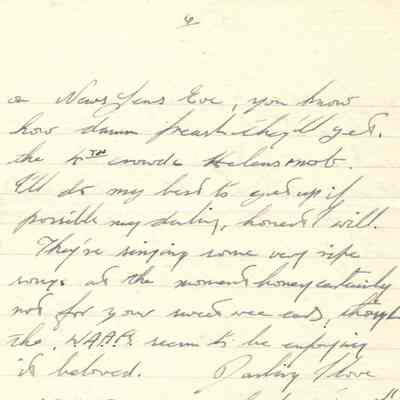 6
a News Years Eve, you know
how damn freash they'll get.
the 4TH crowd & Helens mob.
I'll do my best to get up if
possible my darling, honest I will.
They're singing some very ripe
songs at the moment honey certainly
not for your sweet wee ears, though
the W.A.A.F.s seem to be enjoying
it beloved. Darling I love